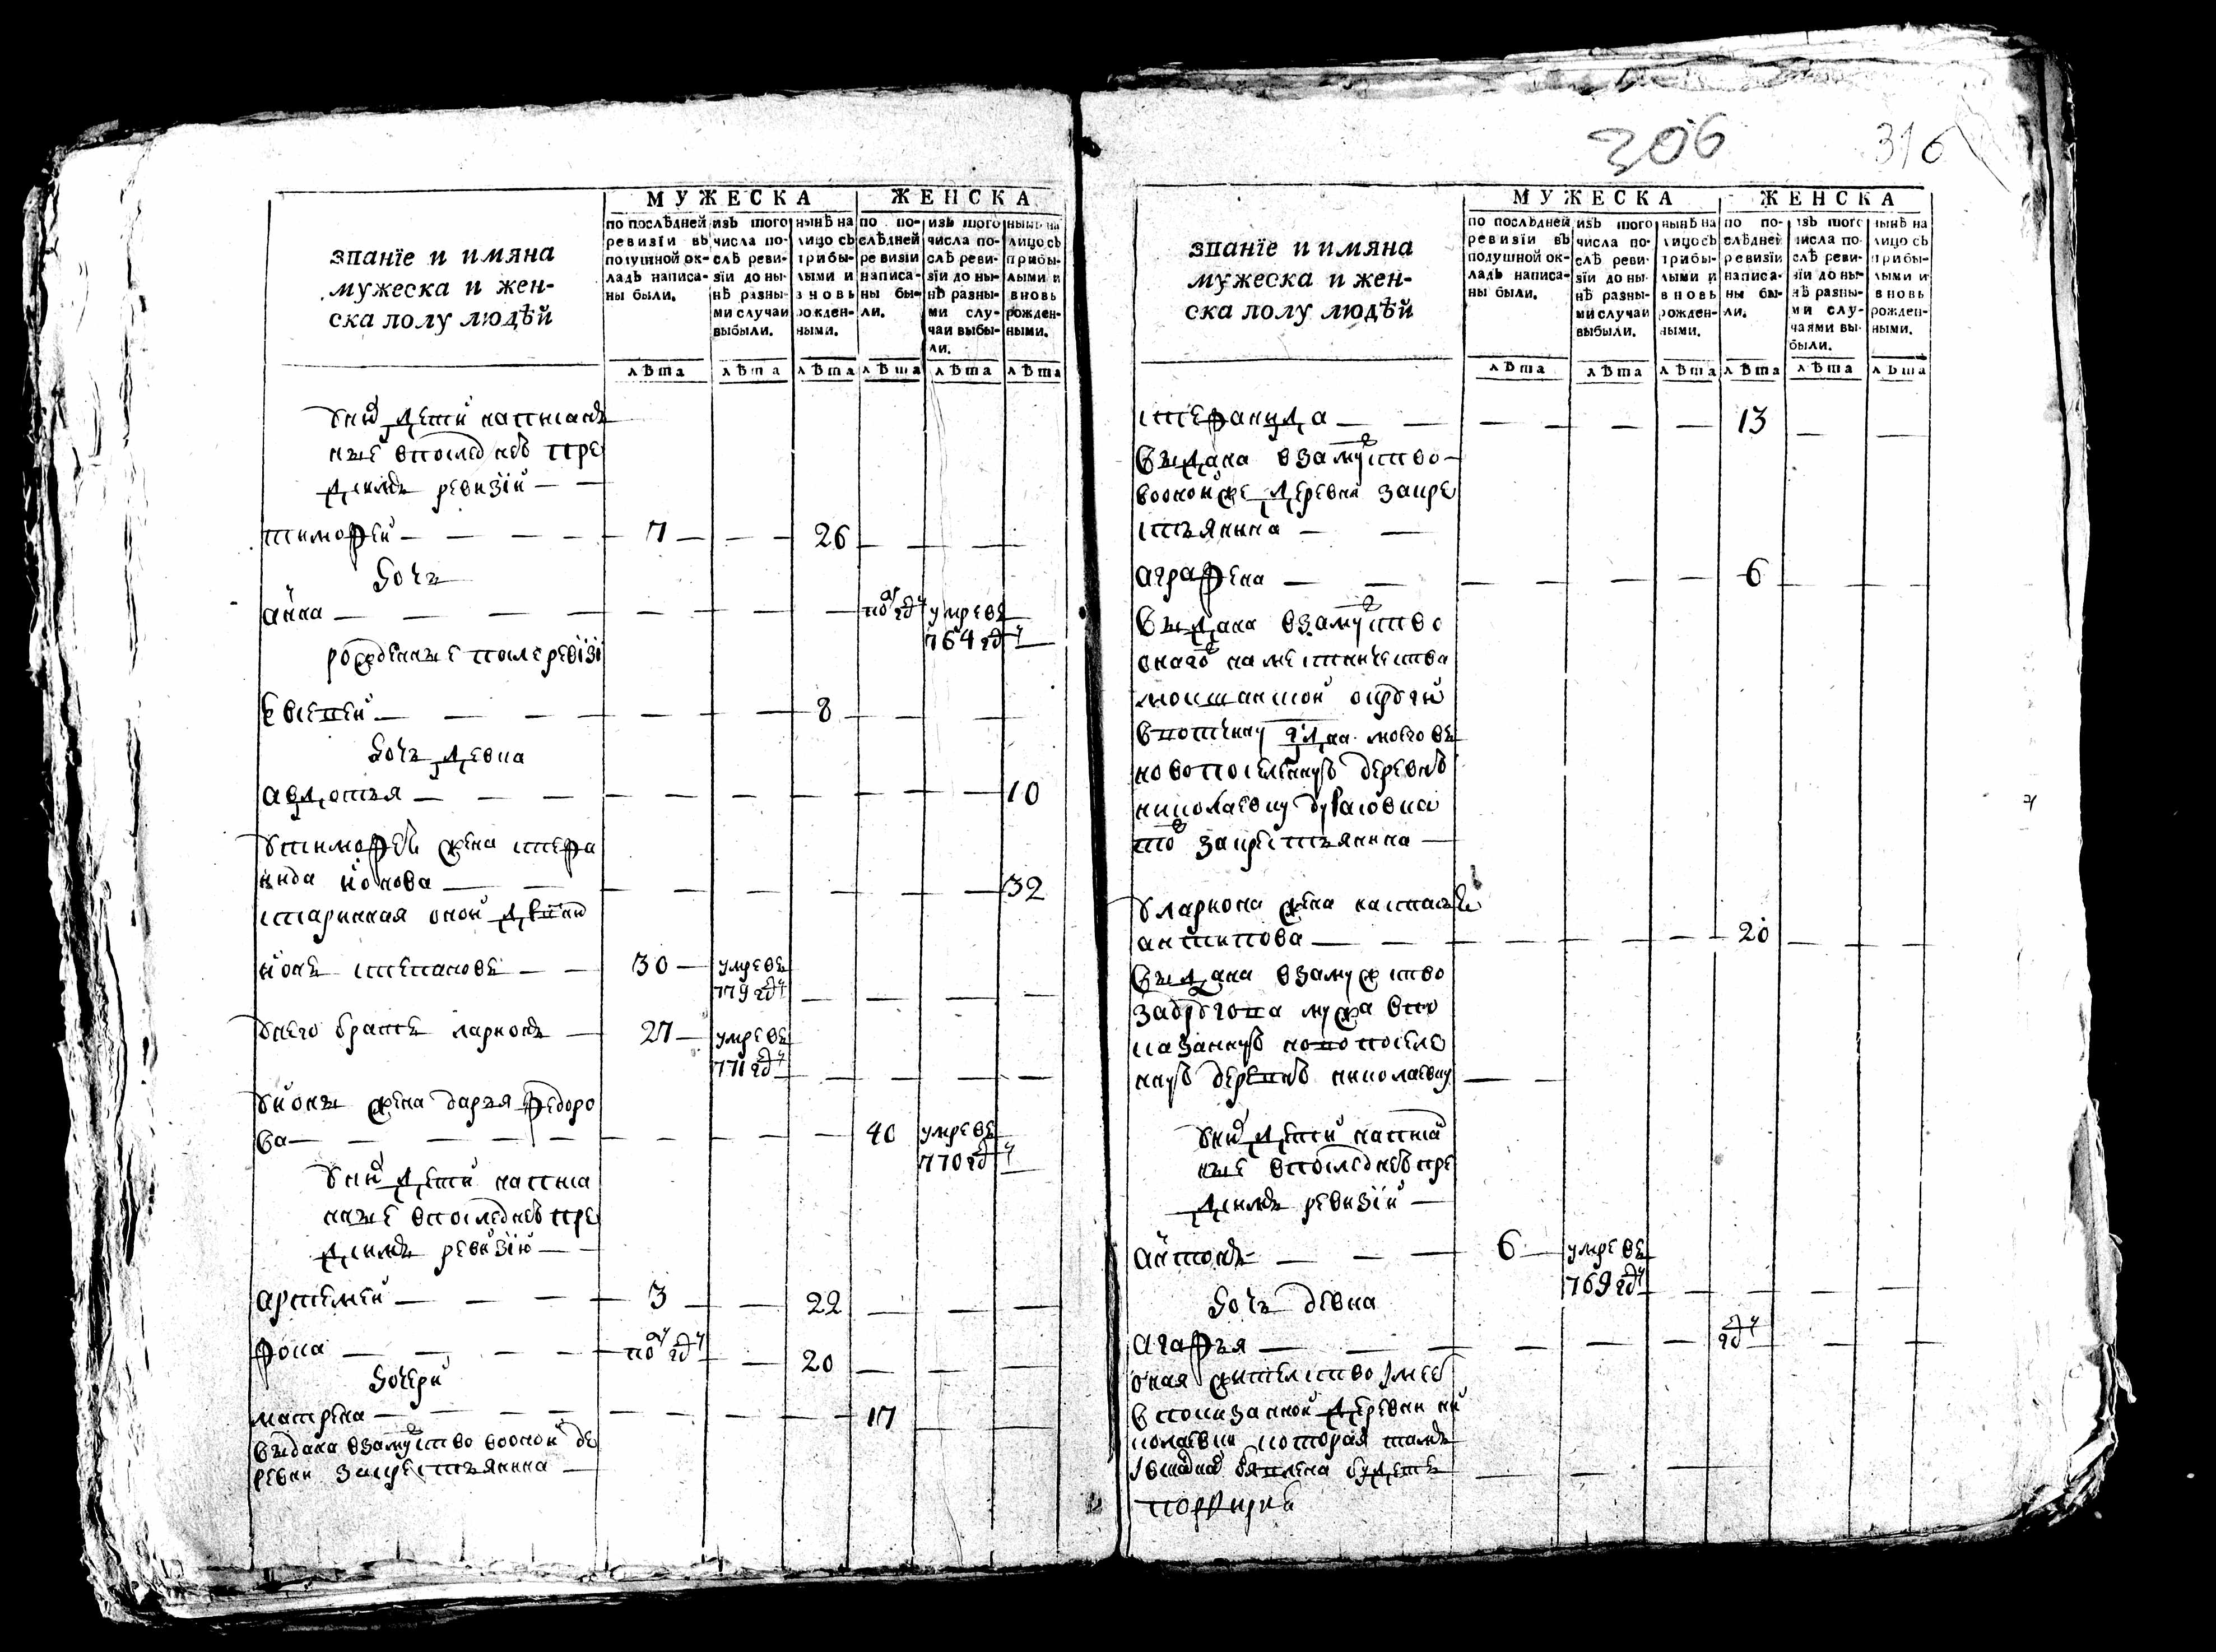 МУЖЕСКА ЖЕНСКА
званїе и имяна
мужеска и жен-
ска полу людѣй
по послѣдней ревизїи въ подушной окладъ написаны были.
изъ того числа послѣ ревизїи до нынѣ разными случаи выбыли.
нынѣ на лицо съ прибылыми и вновь рожденными.
по послѣдней ревизїи написаны были.
изъ того числа послѣ ревизїи до нынѣ разными случаи выбыли.
нынѣ на лицо съ прибылыми и вновь рожденными.
лѣта лѣта лѣта лѣта лѣта лѣта
у них дети написан
ные впоследнею пре
д сим ревизїи
тимофей 7 26
дочь
анна полгоду умре въ
764 году
рожденные после ревизїи
евсевей 8
дочь девка
авдотья 10
у тимофея жена стефа
нида ионова 32
старинная оной д
ионе степанове 30 умре въ
779 году
у него братъ ларионъ 27 умре въ
771 году
у ионы жена дарья федоро
ва 40 умре въ
770 году
у них дети написа
ные впоследнею пре
д сим ревизїю
артемей 3 22
фока полгоду 20
дочери
матрена 17
выдана взамужство во оной де
ревни за крестьянина
306 316
МУЖЕСКА ЖЕНСКА
званїе и имяна
мужеска и жен-
ска полу людѣй
по послѣдней ревизїи въ подушной окладъ написаны были.
изъ того числа послѣ ревизїи до нынѣ разными случаи выбыли.
нынѣ на лицо съ прибылыми и вновь рожденными.
по послѣдней ревизїи написаны были.
изъ того числа послѣ ревизїи до нынѣ разными случаями выбыли.
нынѣ на лицо съ прибылыми и вновь рожденными.
лѣта лѣта лѣта лѣта лѣта лѣта
стефанида 13
выдана взамужство
во оной же деревни за кре
стьянина
аграфена 6
выдана взамужство
онаго наместничества
мокшанской округи
в вотчину
новопоселенную деревню
николаевку
то за крестьянина
у лариона жена настасья
антипова 20
выдана взамужство
за другова мужа в по
казанную новопоселе
ную деревню николаевку
у них дети написа
ные впоследнею пре
д сим ревизїи
антонъ 6 умре въ
769 году
дочь девка
агафья году
оная жительство имеет
в показанной деревни ни
колаевки которая тамъ
явлена будетъ
порфирей